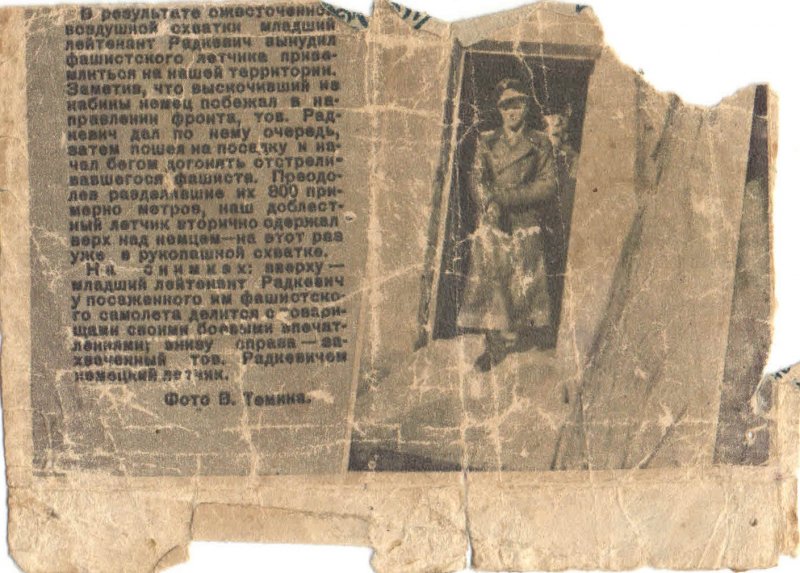 В результате ожесточенной
воздушной схватки младший
лейтенант Радкевич вынудил
фашистского летчика призе-
млиться на нашей территории.
Заметив, что выскочивший из
кабины немец побежал в на-
правлении фронта, тов. Рад-
кевич дал по нему очередь,
затем пошел на посадку и на-
чал бегом догонять отстрели-
вавшегося фашиста. Преодо-
лев разделявшие их 800 при-
мерно метров, наш доблест-
ный летчик вторично одержал
верх над немцем—на этот раз
уже в рукопашной схватке.
На снимках: вверху—
младший лейтенант Радкевич
у посаженного им фашистско-
го самолета делится с товари-
щами своими боевыми впечат-
лениями; внизу справа—за-
хваченный тов. Радкевичем
немецкий летчик.
Фото В. Темина.